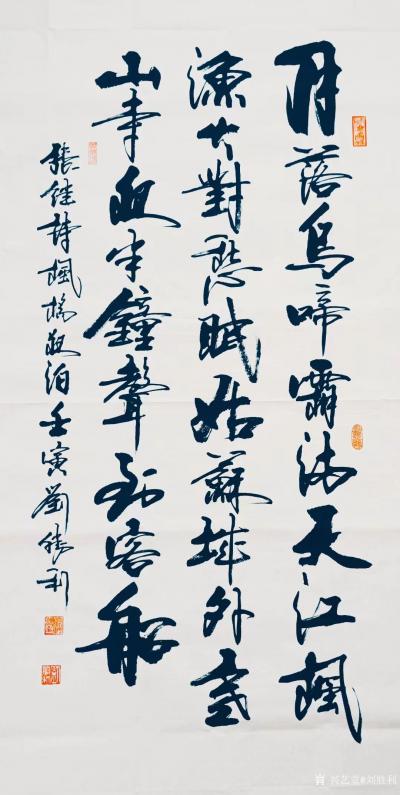 月落烏啼霜满天江楓
漁火對愁眠姑蘇城外寒
山寺夜半鐘聲到客船
張继詩楓橋夜泊壬寅劉勝利
兴艺堂@刘胜利